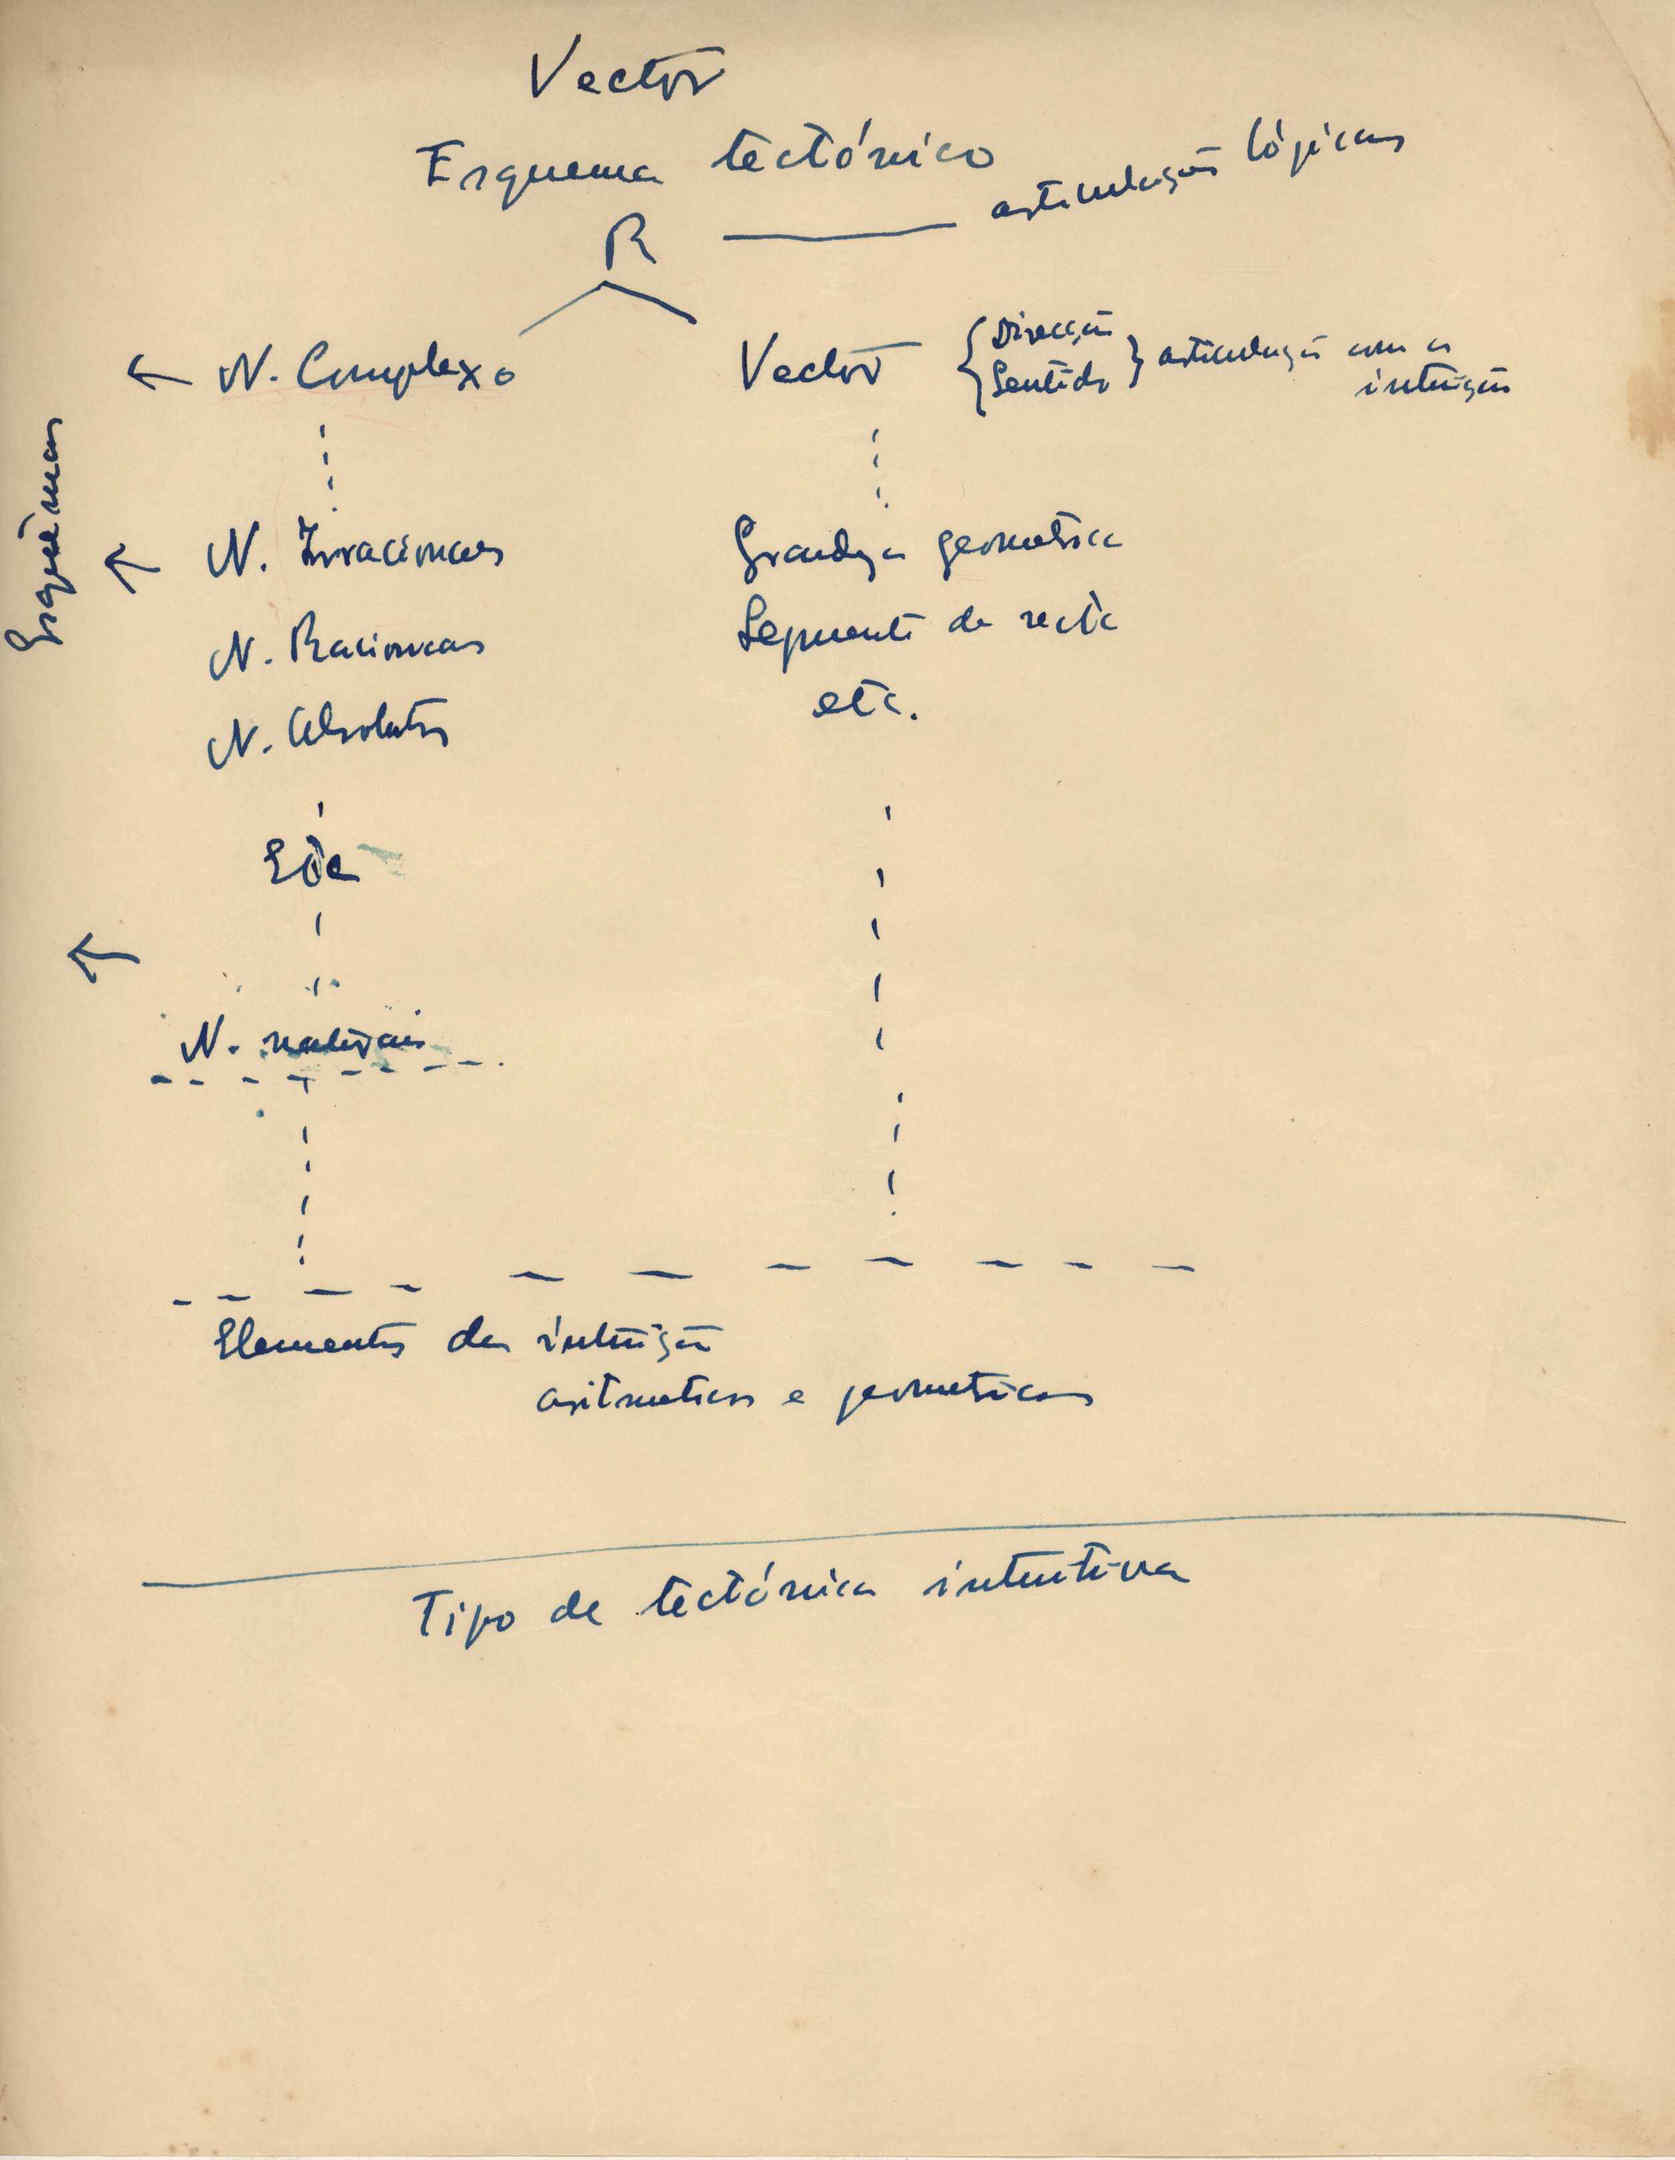 Vector
Esquema tectónico
R — articulação lógicas
N. Complexo
Vector { Direcção
Sentido } articulação com a
intuição
Esquemas
N. Irracionaes
Grandeza geometrica
N. Racionaes
Segmento de recta
N. Absolutos
etc.
Etc
N. naturais
Elementos da intuição
aritmeticos e geometricos
Tipo de tectónica intuitiva